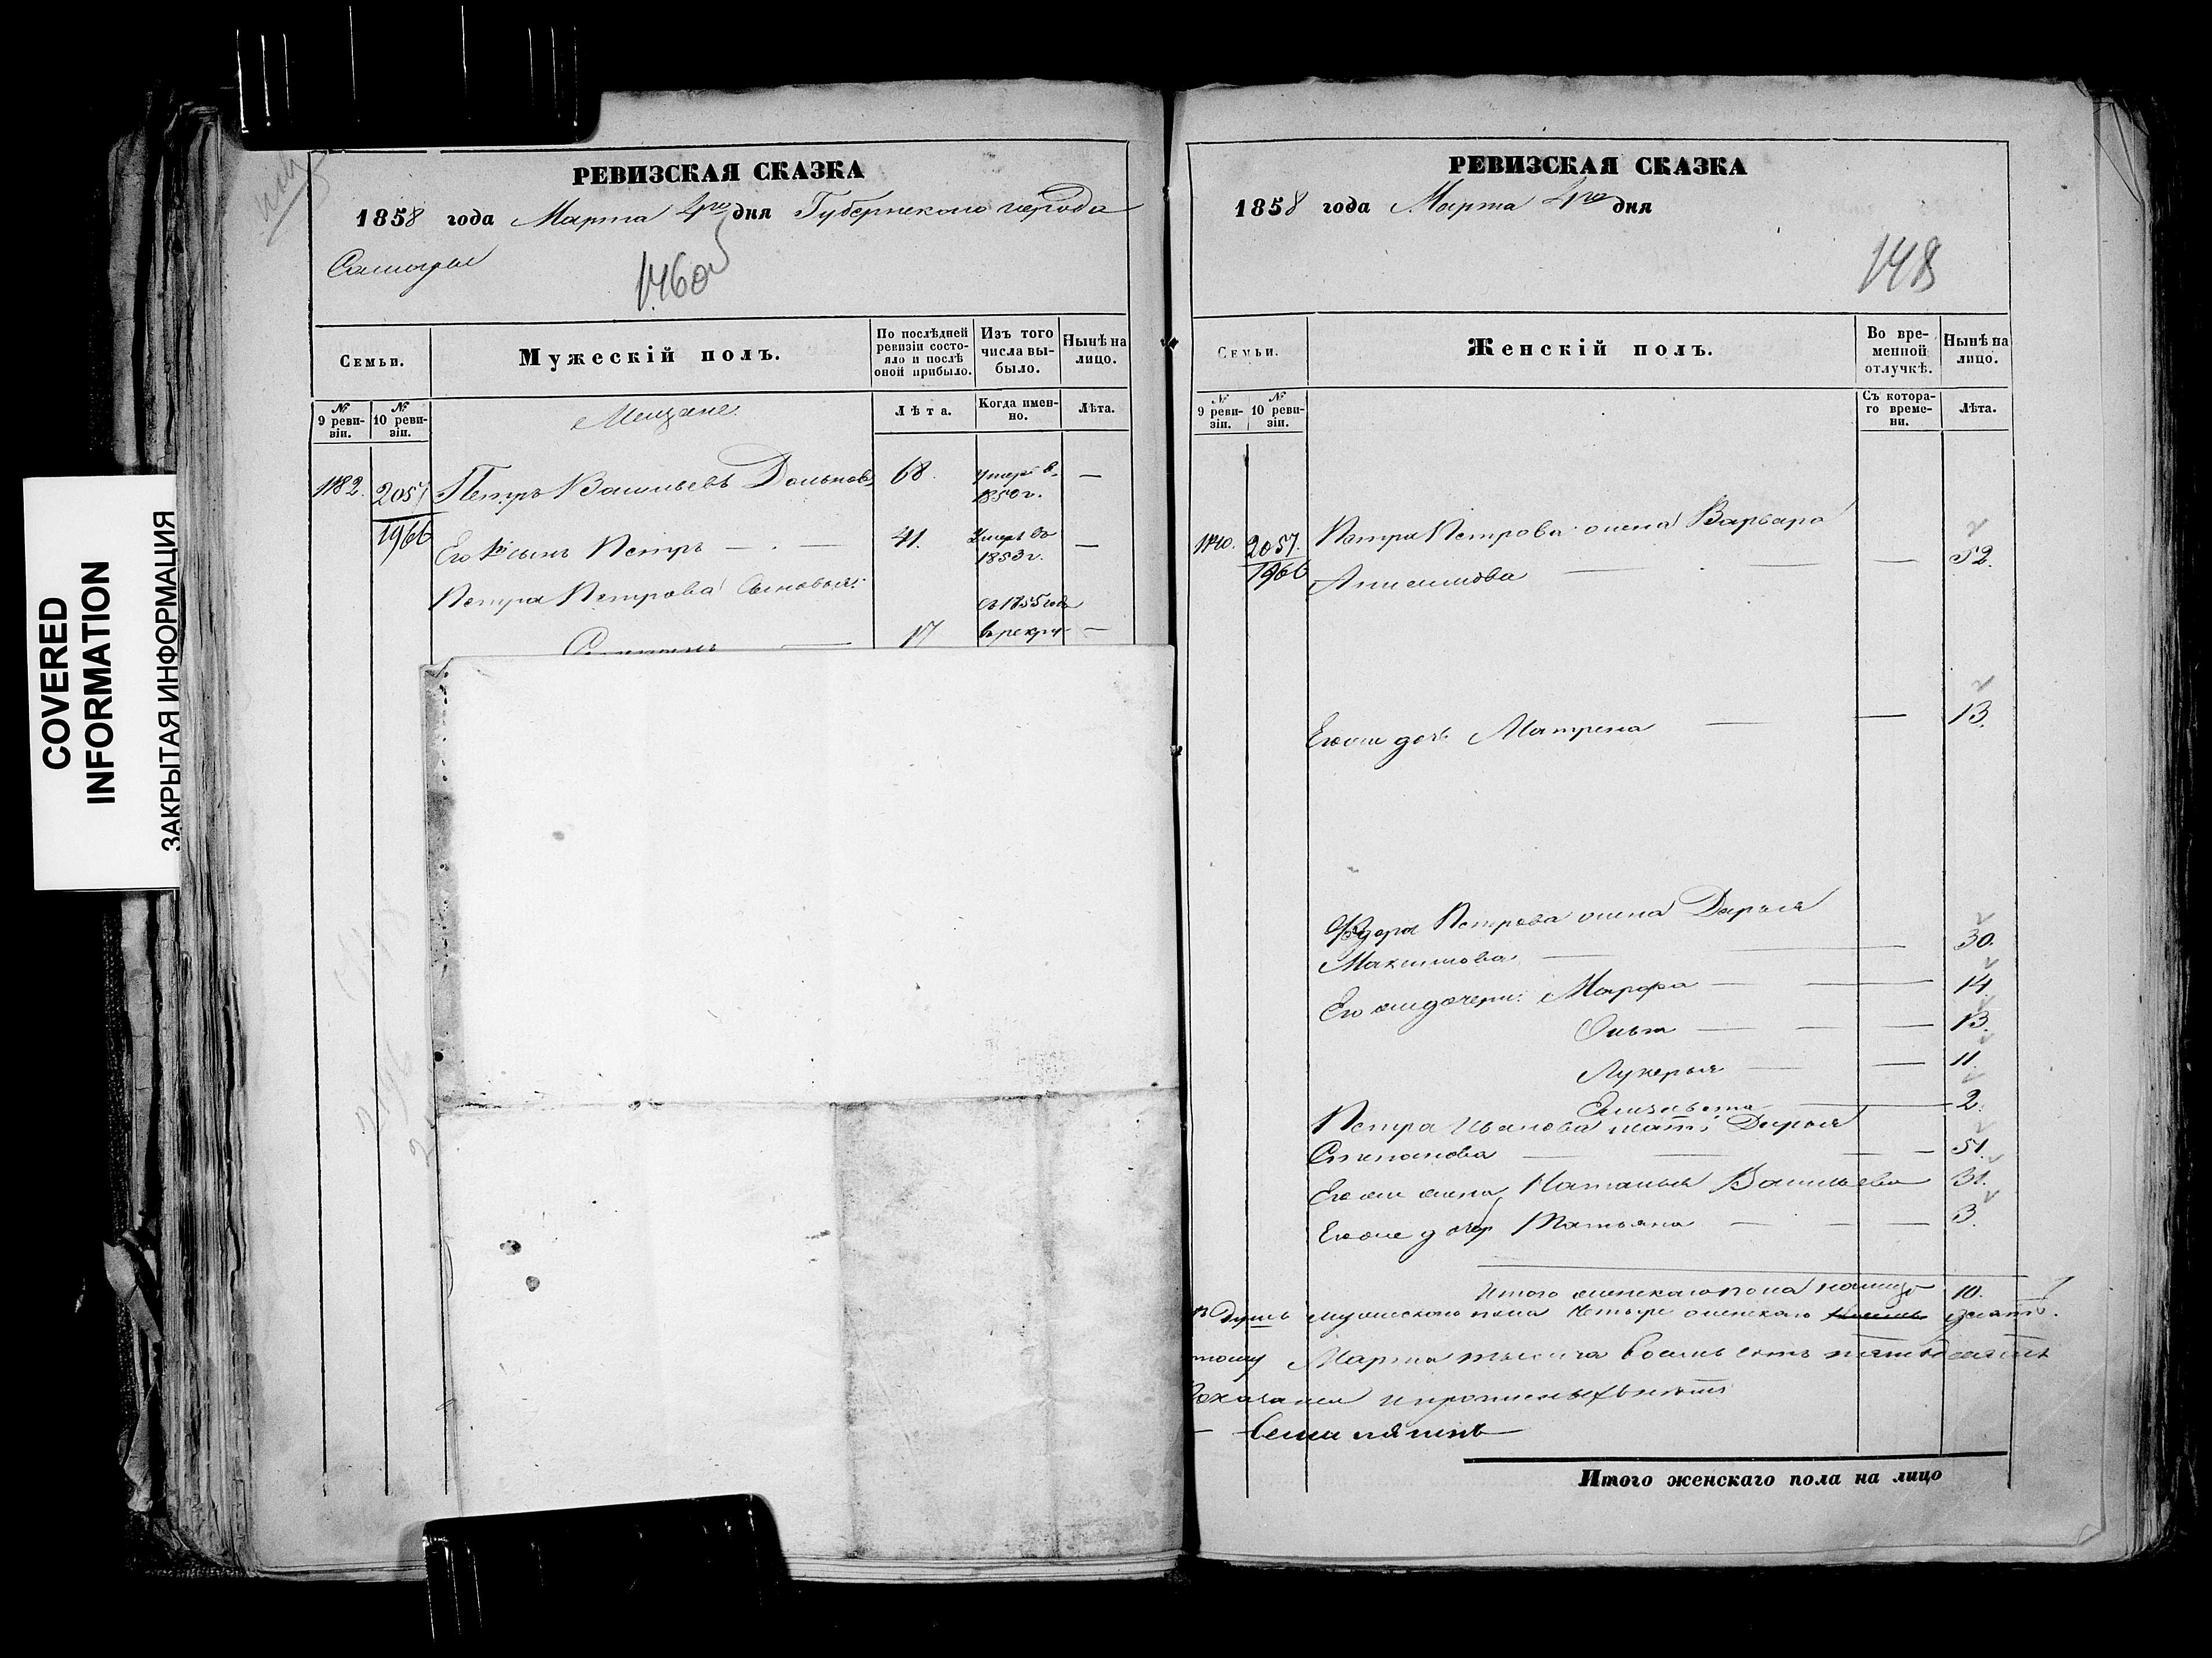 COVERED
INFORMATION
ЗАКРЫТАЯ ИНФОРМАЦИЯ
РЕВИЗСКАЯ СКАЗКА
1858 года Марта 4го дня Губернского города
Самары
Семьи.
Мужескій полъ.
По послѣдней ревизіи состояло и послѣ оной прибыло.
Изъ того числа выбыло.
Нынѣ на лицо.
№ 9 ревизіи.
№ 10 ревизіи.
Мещане.
Лѣта.
Когда именно.
Лѣта.
1182. 2057 Петръ Васильевъ 68. Умеръ в 1850 г. —
1966
Его сынъ Петръ — 41. Умеръ въ 1853 г. —
Петра Петрова сыновья:
17 съ 1855 года в рекру —
РЕВИЗСКАЯ СКАЗКА
1858 года Марта 4го дня
148
Семьи.
Женскій полъ.
Во временной отлучкѣ.
Нынѣ на лицо.
№ 9 ревизіи.
№ 10 ревизіи.
Съ котораго времени.
Лѣта.
2057. Петра Петрова жена Варвара
1966 Анисимова — — — 52.
Его же дочь Матрена — — 13.
Федора Петрова жена Дарья
Максимова — — 30.
Его же дочери: Марфа — — 14.
Ольга — — — 13.
Лукерья — — 11.
Елизавета — 2.
Петра Иванова мать Дарья
Степанова — — — 51.
Его же жена Наталья Васильева 31.
Его же дочь Татьяна — — — 3.
Итого женскаго пола налицо 10.
Душъ мужескаго пола четыре женскаго десять.
Марта тысяча восемь сотъ пятьдесятъ
Итого женскаго пола на лицо